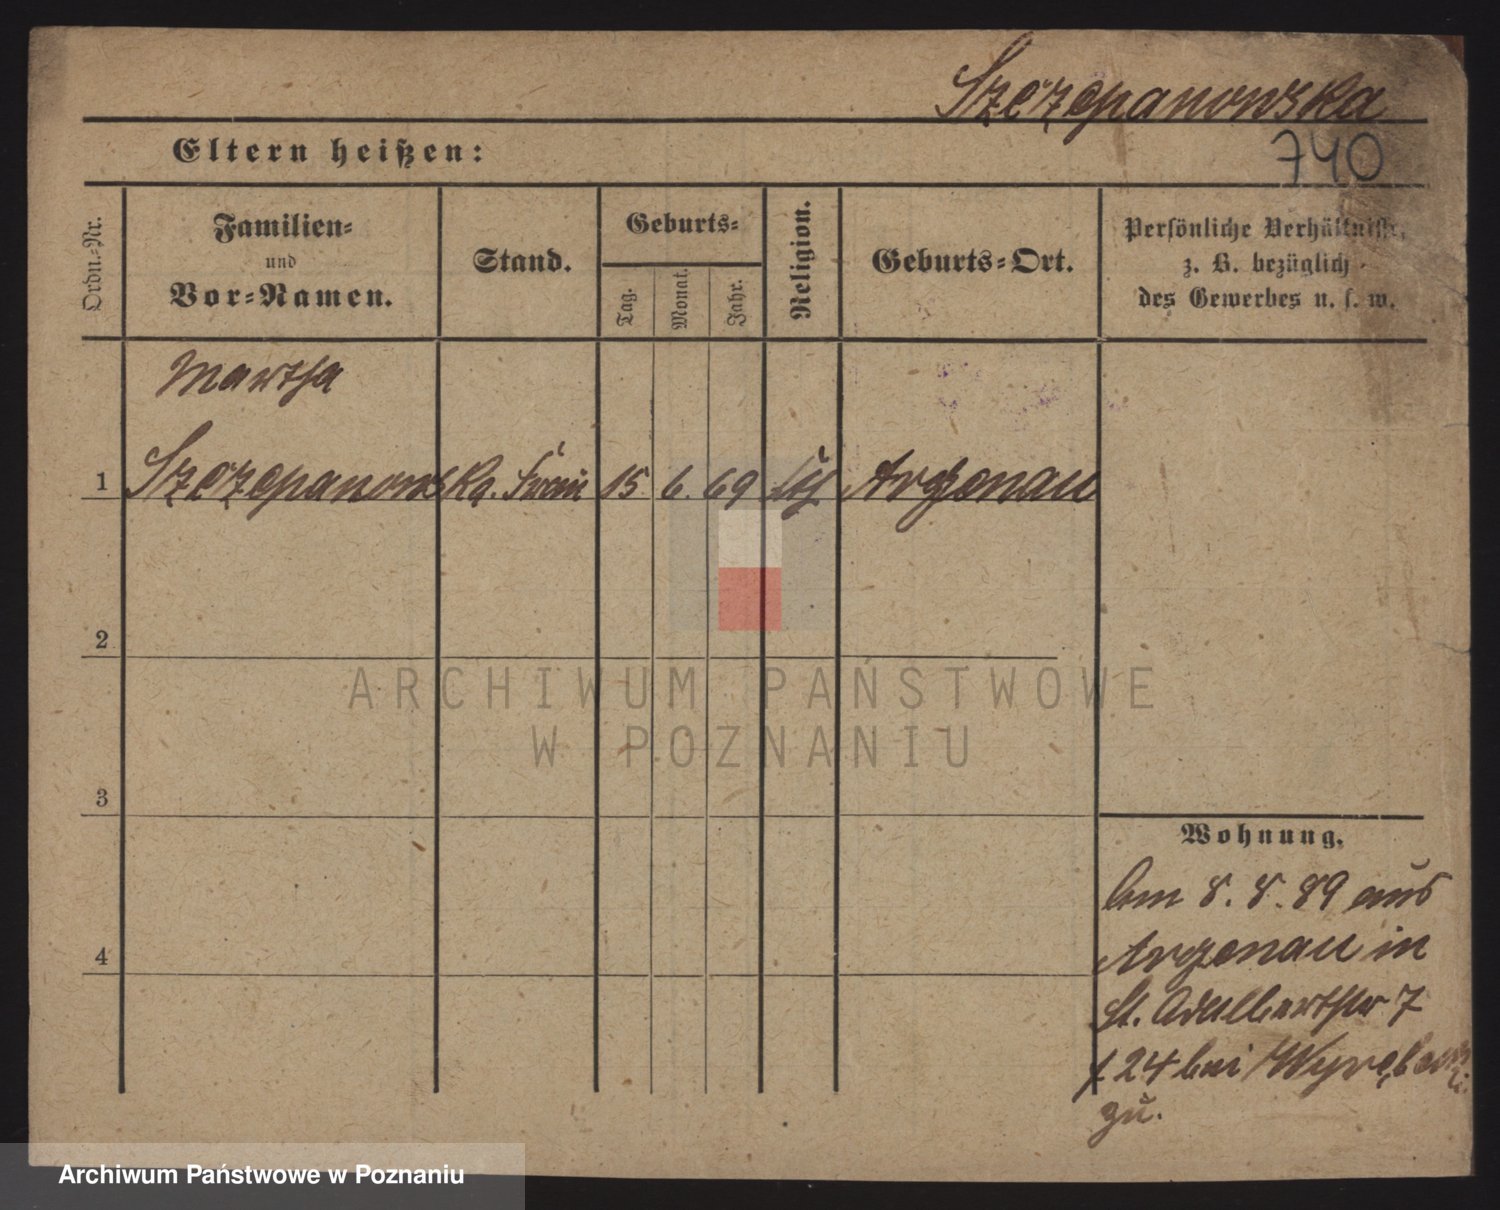 Szczepanowska
Eltern heißen:
740
Ordn.-Nr.
Familien-
und
Vor-Namen.
Stand.
Geburts-
Tag.
Monat.
Jahr.
Religion.
Geburts-Ort.
Persönliche Verhältnisse,
z. B. bezüglich
des Gewerbes u. s. w.
Martha
1 Szczepanowska. 15 6. 69 Argenau
2
ARCHIWUM PAŃSTWOWE
W POZNANIU
3
Wohnung.
Am 8. 8. 89 aus
4
Argenau in
St. Adalbertstr 7
24 bei
zu.
Archiwum Państwowe w Poznaniu